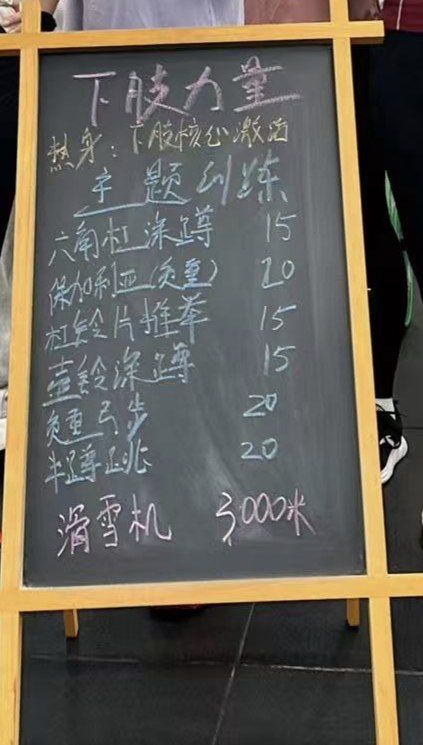 下肢力量
热身：下肢核心激活
主题训练
六角杠深蹲 15
保加利亚(负重) 20
杠铃片推举 15
壶铃深蹲 15
负重弓步 20
半蹲跳 20
滑雪机 3000米